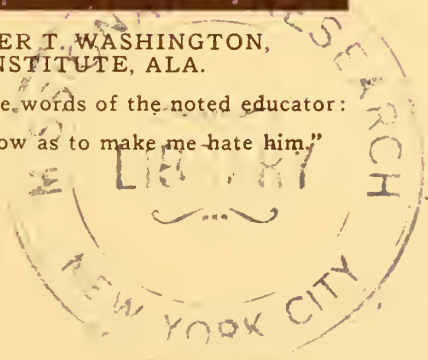 ER T. WASHINGTON,
NSTITUTE, ALA.
e words of the noted educator:
ow as to make me hate him."
RESEARCH
NEW YORK CITY